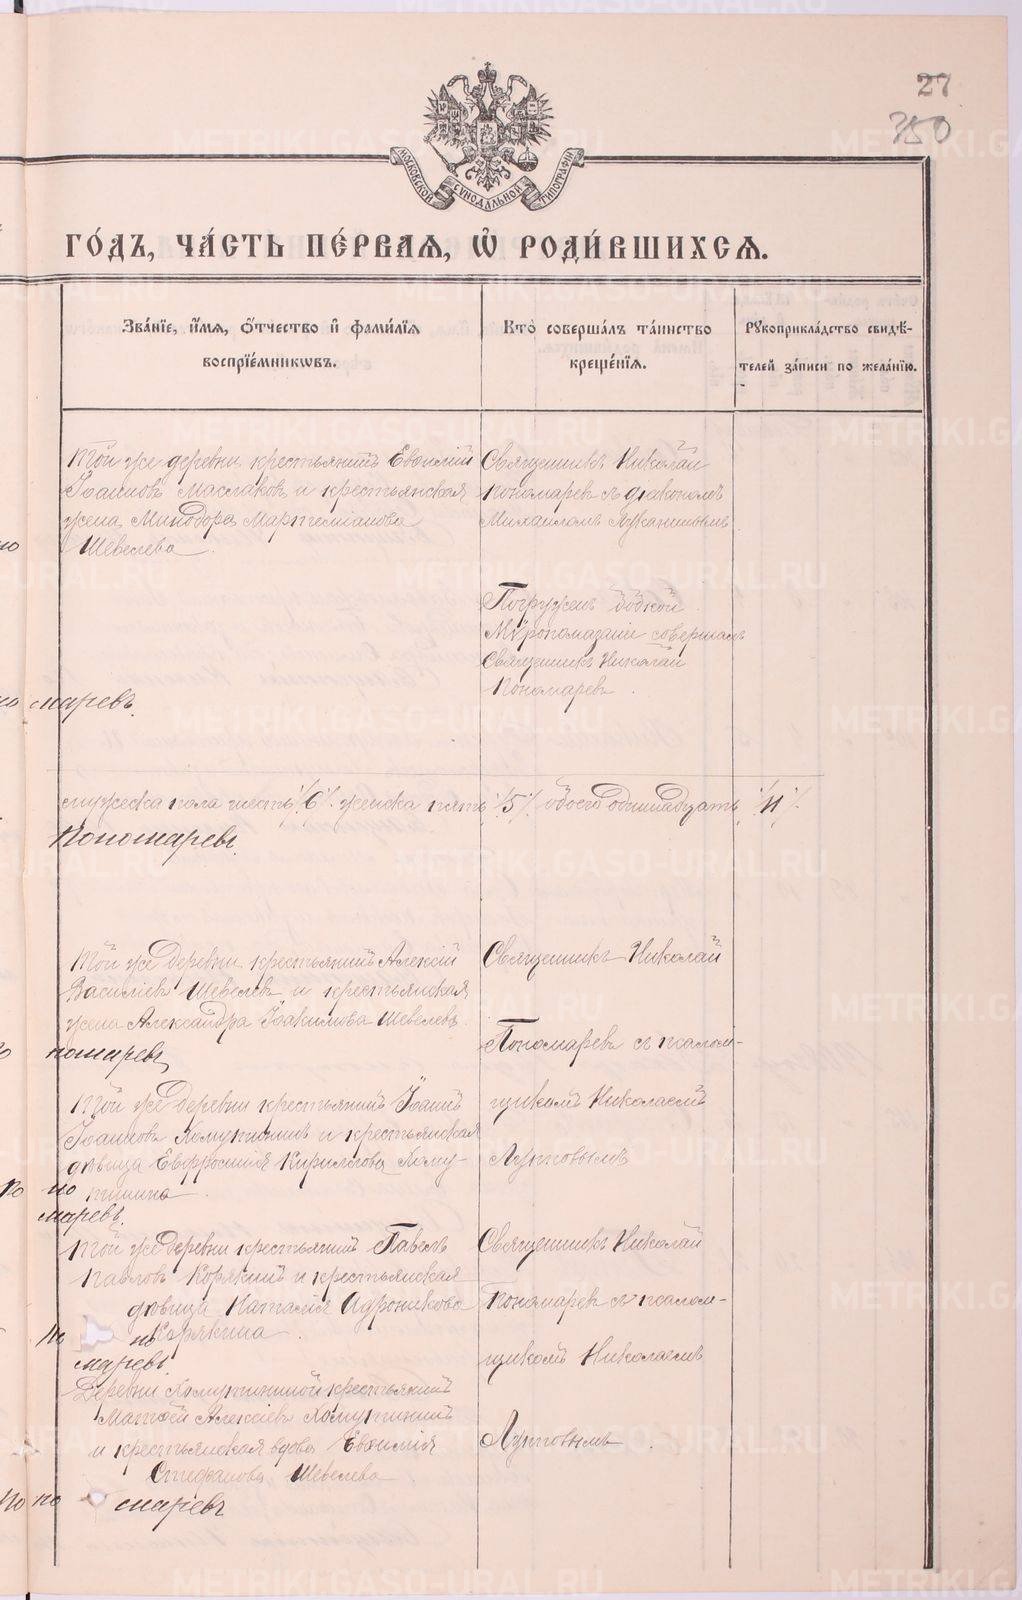 27
350
МОСКОВСКОЙ СУНОДАЛЬНОЙ ТИПОГРАФІИ
ГО́ДЪ, ЧА́СТЬ ПЕ́РВАѦ, Ѡ҆ РОДИ́ВШИХСѦ.
Зва́нїе, и҆́мѧ, ѻ҆́тчество и҆ фами́лїѧ
воспрїе́мникѡвъ.
Кто̀ соверша́лъ та́инство
креще́нїѧ.
Рꙋкоприкла́дство свидѣ́-
телей за́писи по жела́нїю.
Той же деревни крестьянинъ Евѳимій
Іоанновъ Маслаковъ и крестьянская
жена Минодора Мартемianова
Шевелева.
Священникъ Николай
Пономаревъ съ діакономъ
Михаиломъ
Погруженъ бабкой.
Мѵропомазаніе совершалъ
Священникъ Николай
Пономаревъ.
но
по марев.
мужеска пола шесть "6" женска пять "5" обоего одиннадцать "11".
Пономаревъ.
Той же деревни крестьянинъ Алексій
Василіевъ Шевелевъ и крестьянская
жена Александра Іоакимова Шевелева.
Священникъ Николай
Пономаревъ съ псалом-
номаревъ
Той же деревни крестьянинъ Іоаннъ
Іоанновъ Хомутининъ и крестьянская
дѣвица Евфросинія Кирилова Хому-
тинина.
щикомъ Николаемъ
Луговымъ
по но
маревъ.
Той же деревни крестьянинъ Павелъ
Павловъ Корякинъ и крестьянская
дѣвица Наталія Адроникова
Корякина.
Священникъ Николай
Пономаревъ съ псалом-
щикомъ Николаемъ
по но
маревъ.
Деревни Хомутининой крестьянинъ
Матѳей Алексіевъ Хомутининъ
и крестьянская вдова Евѳимія
Стефанова Шевелева.
Луговымъ.
но по маревъ